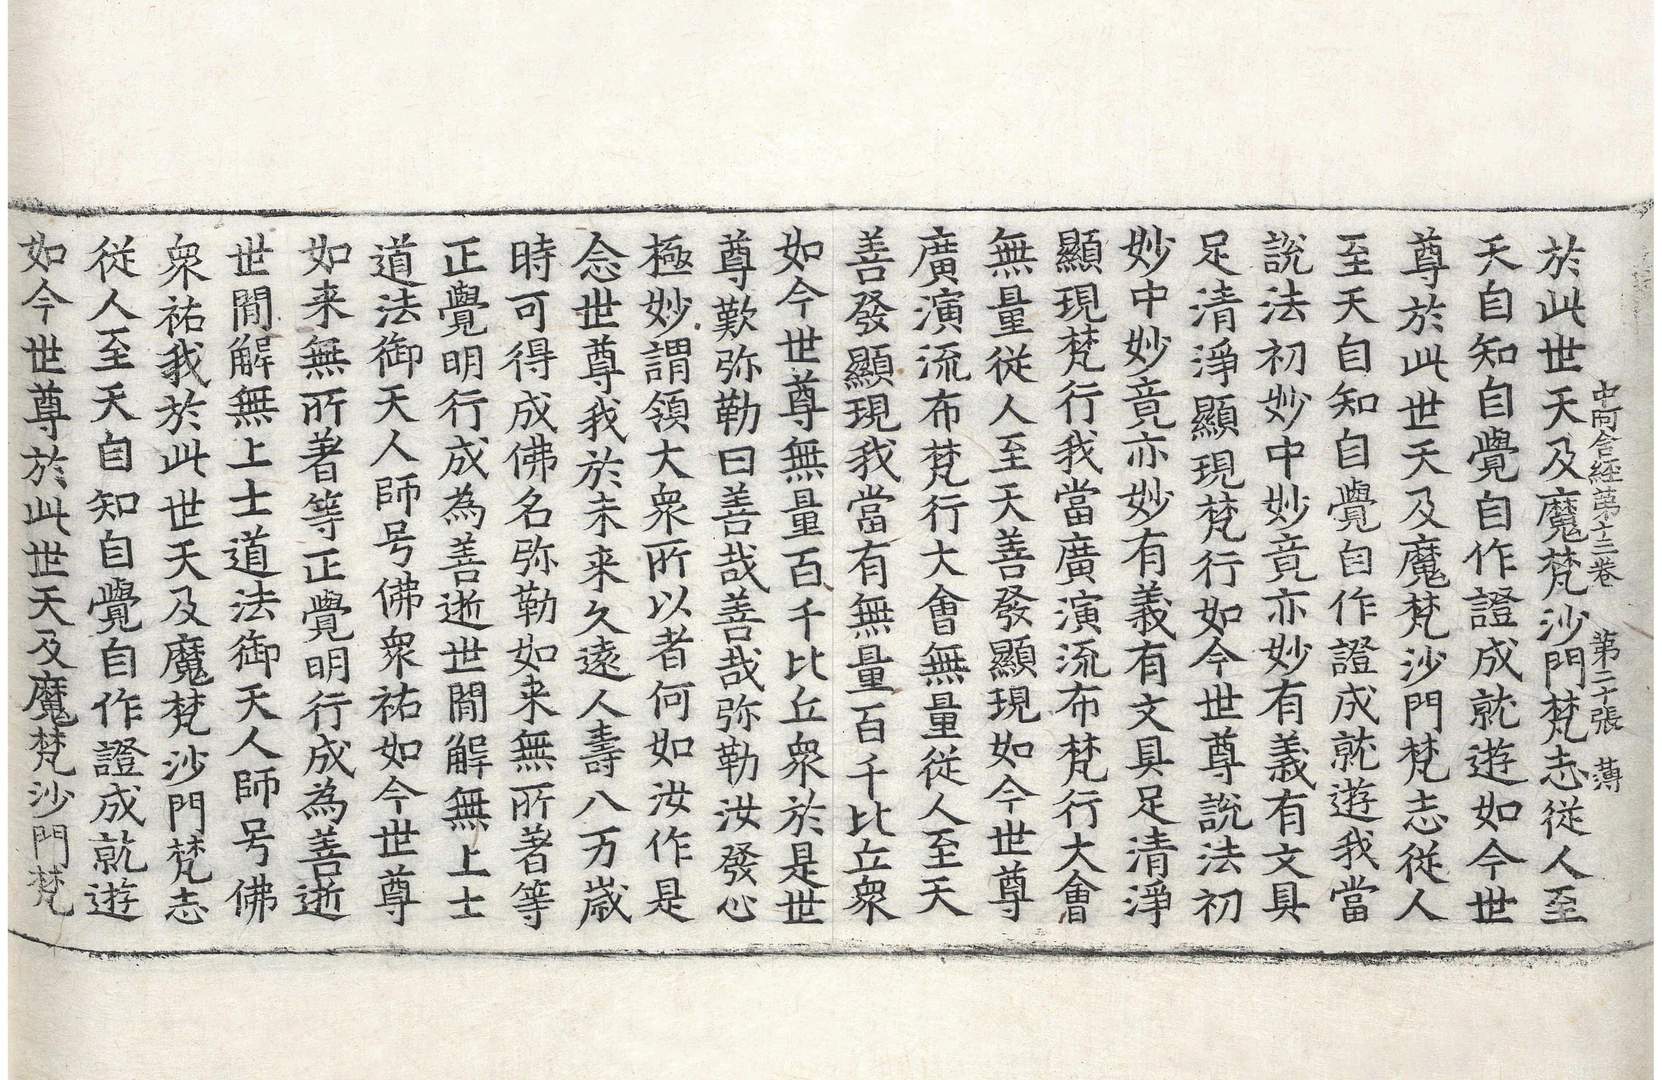 中阿含經第十三卷 第二十張 薄
於此世天及魔梵沙門梵志從人至
天自知自覺自作證成就遊如今世
尊於此世天及魔梵沙門梵志從人
至天自知自覺自作證成就遊我當
說法初妙中妙竟亦妙有義有文具
足清淨顯現梵行如今世尊說法初
妙中妙竟亦妙有義有文具足清淨
顯現梵行我當廣演流布梵行大會
無量從人至天善發顯現如今世尊
廣演流布梵行大會無量從人至天
善發顯現我當有無量百千比丘衆
如今世尊無量百千比丘衆於是世
尊歎弥勒曰善哉善哉弥勒汝發心
極妙謂領大衆所以者何如汝作是
念世尊我於未来久遠人壽八万歲
時可得成佛名弥勒如来無所著等
正覺明行成為善逝世間解無上士
道法御天人師号佛衆祐如今世尊
如来無所著等正覺明行成為善逝
世間解無上士道法御天人師号佛
衆祐我於此世天及魔梵沙門梵志
從人至天自知自覺自作證成就遊
如今世尊於此世天及魔梵沙門梵